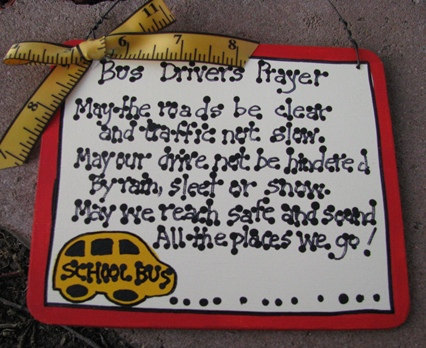 11
6 7 8
8
Bus Drivers Prayer
May the roads be clear
and traffic not slow.
May our drive not be hindered
By rain, sleet or snow.
May we reach safe and sound
All the places we go!
SCHOOL BUS